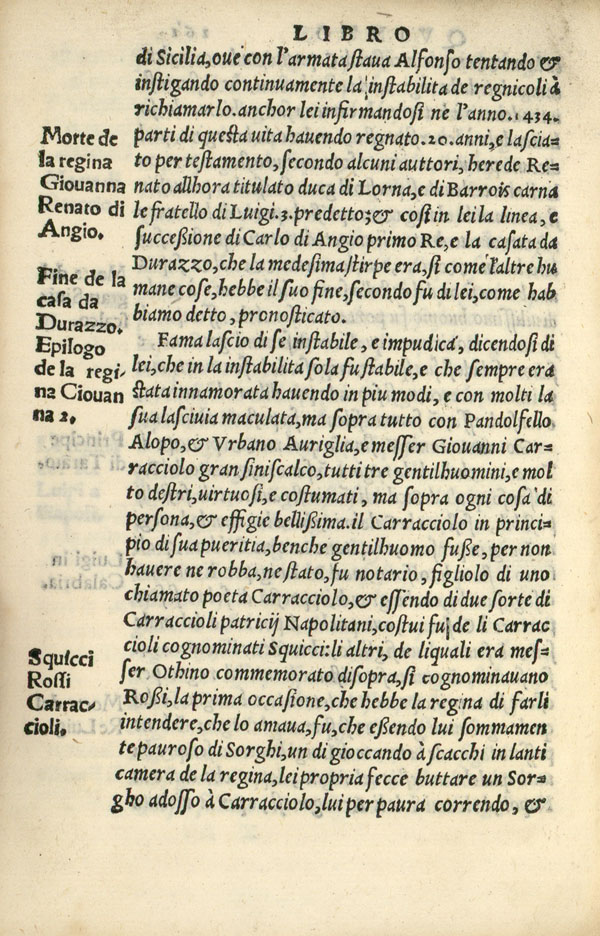 LIBRO
di Sicilia, oue con l'armata staua Alfonso tentando &
instigando continuamente la instabilita de regnicoli à
richiamarlo. anchor lei infirmandosi ne l'anno. 1434.
parti di questa vita hauendo regnato. 20. anni, e lascia-
to per testamento, secondo alcuni auttori, herede Re-
nato allhora titulato duca di Lorna, e di Barrois carna
le fratello di Luigi. 3. predetto; & cosi in lei la linea, e
successione di Carlo di Angio primo Re, e la casata da
Durazzo, che la medesima stirpe era, si come l'altre hu
mane cose, hebbe il suo fine, secondo fu di lei, come hab
biamo detto, pronosticato.
Fama lascio di se instabile, e impudica, dicendosi di
lei, che in la instabilità sola fu stabile, e che sempre era
stata innamorata hauendo in piu modi, e con molti la
sua lasciuia maculata, ma sopra tutto con Pandolfello
Alopo, & Vrbano Auriglia, e messer Giouanni Car-
racciolo gran siniscalco, tutti tre gentilhuomini, e mol
to destri, uirtuosi, e costumati, ma sopra ogni cosa di
persona, & effigie bellissima. il Carracciolo in princi-
pio di sua pueritia, benche gentilhuomo fusse, per non
hauere ne robba, ne stato, fu notario, figliolo di uno
chiamato poeta Carracciolo, & essendo di due sorte di
Carraccioli patricij Napolitani, costui fu de li Carrac
cioli cognominati Squicci: li altri, de liquali era mes-
ser Othino commemorato disopra, si cognominauano
Rossi, la prima occasione, che hebbe la regina di farli
intendere, che lo amaua, fu, che essendo lui sommamen
te pauroso di Sorghi, un di gioccando à scacchi in lanti
camera de la regina, lei propria fecce buttare un Sor-
gho adosso à Carracciolo, lui per paura correndo, &
Morte de
la regina
Giouanna
Renato di
Angio.
Fine de la
casa da
Durazzo.
Epilogo
de la regi-
na Giouan
na 2.
Squicci
Rossi
Carrac-
cioli.